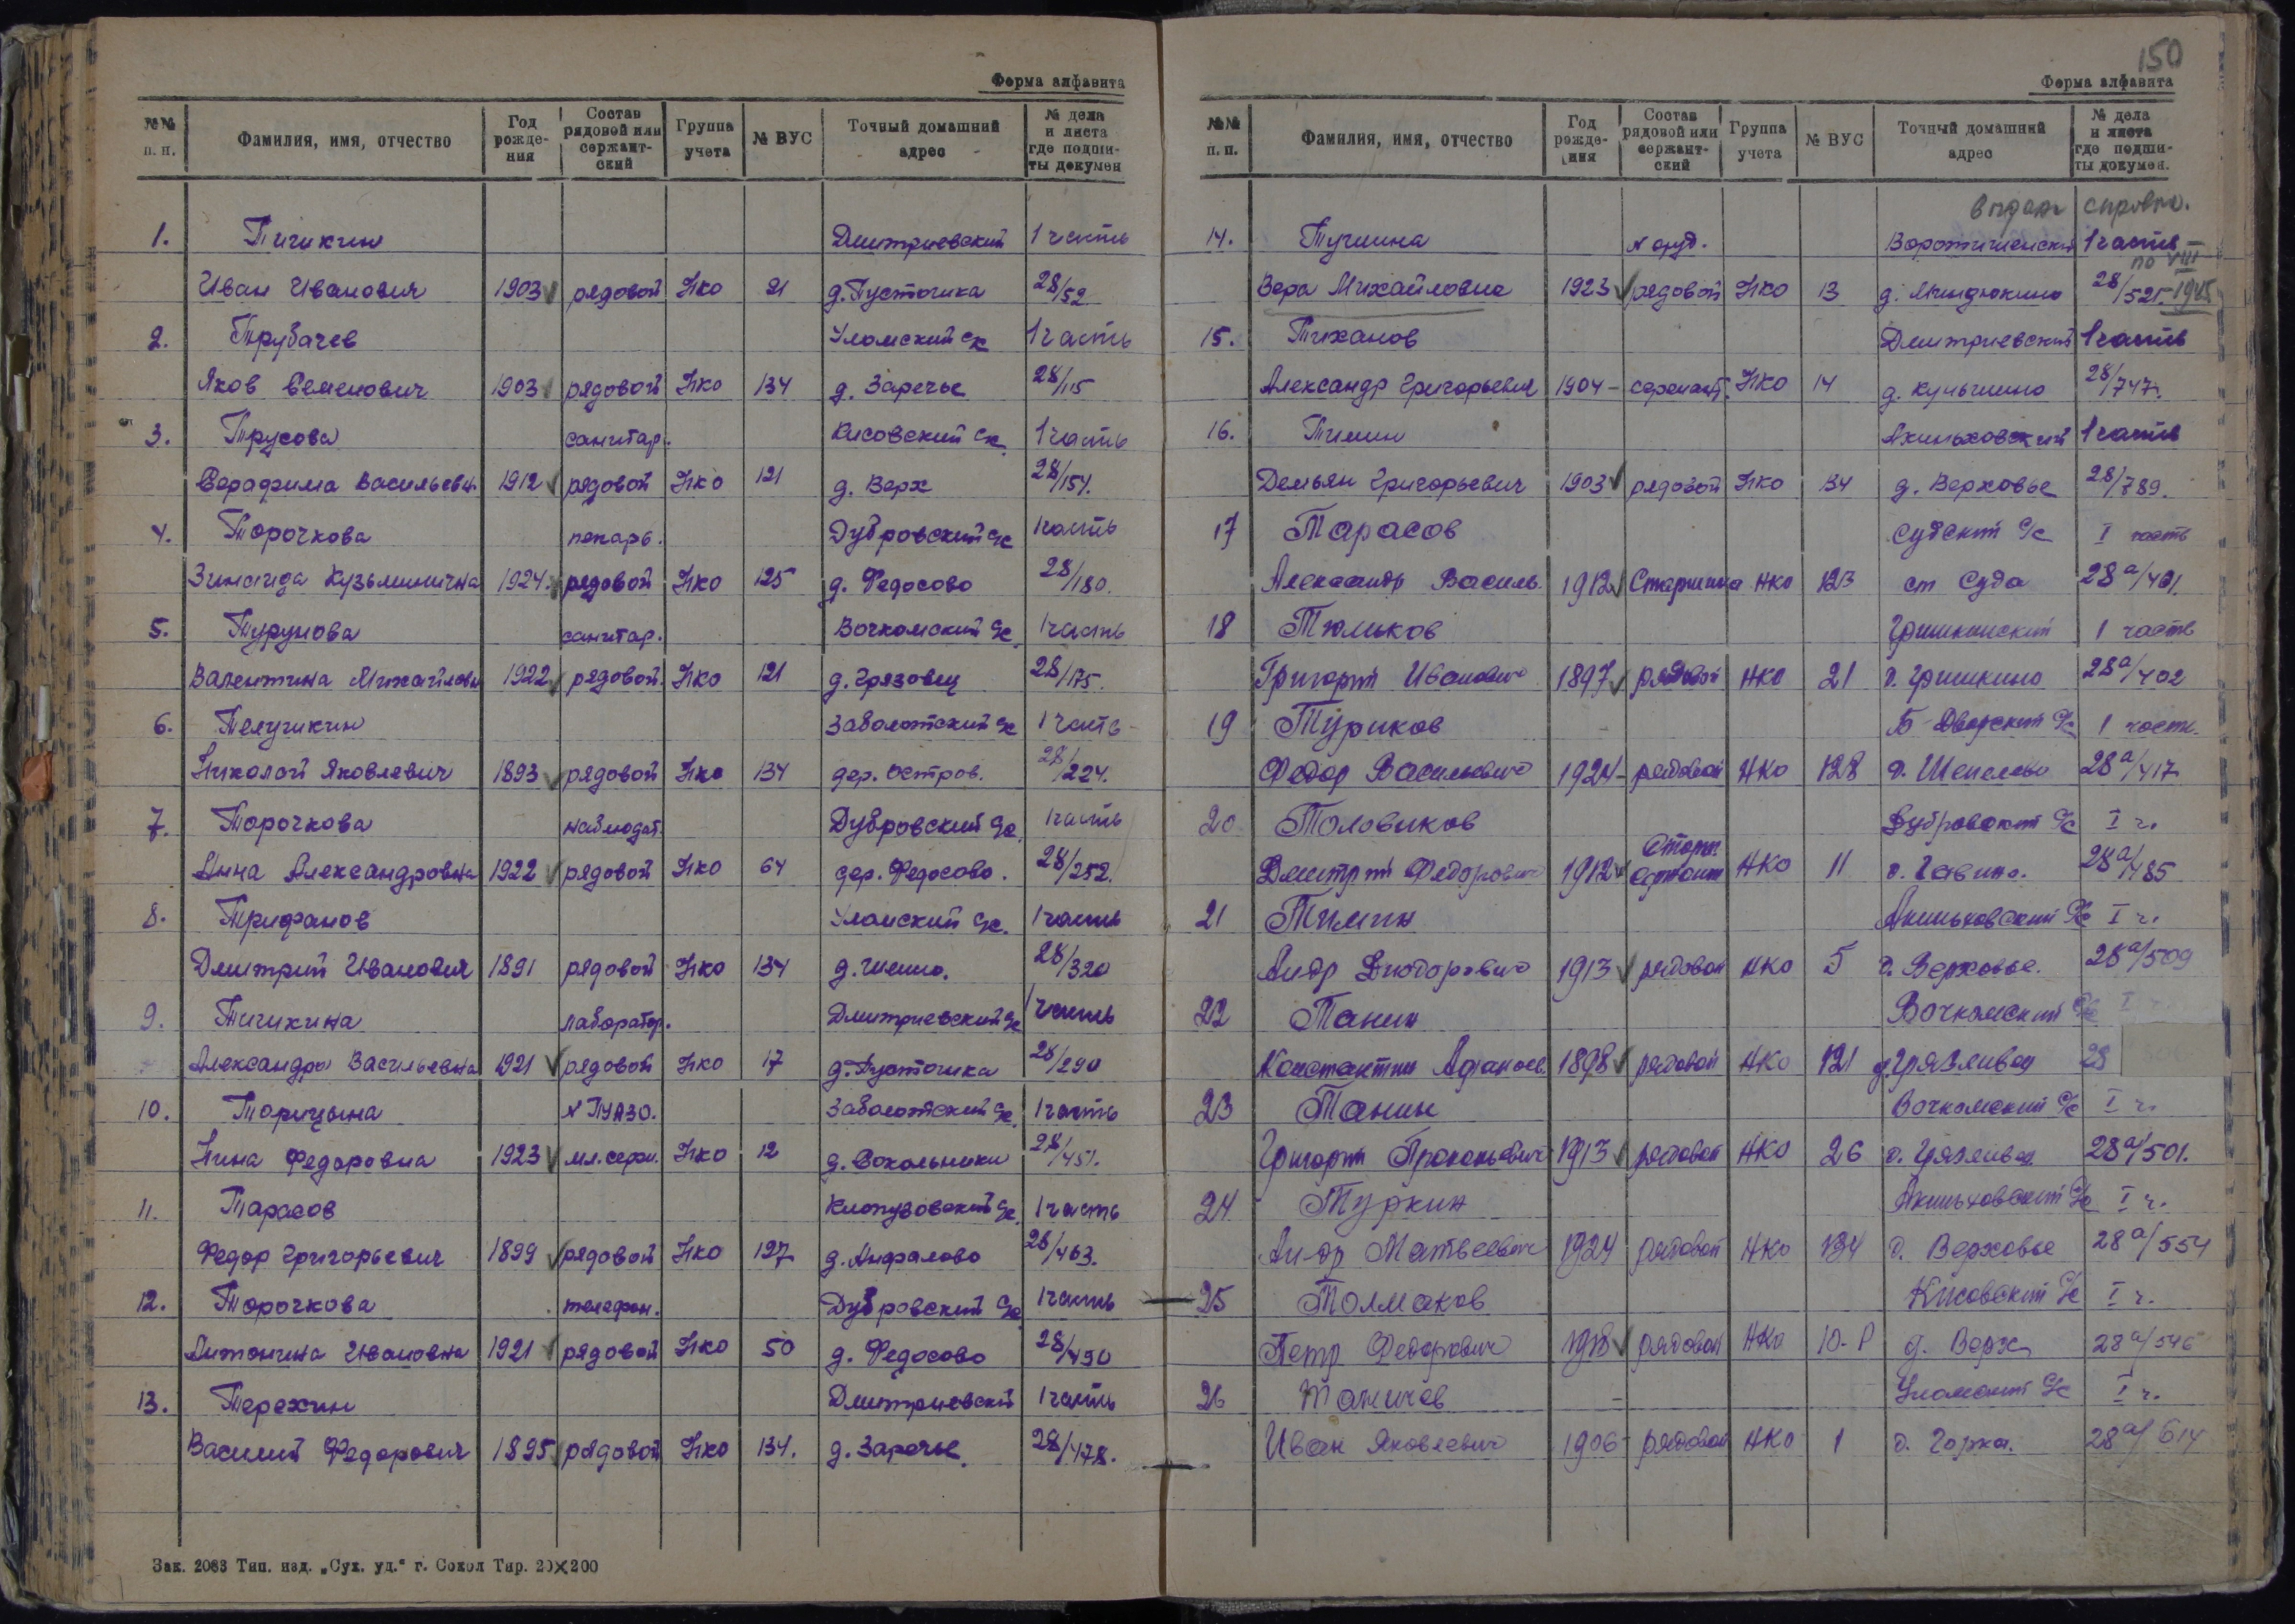 Форма алфавита
№№ п. п. Фамилия, имя, отчество Год рожде- ния Состав рядовой или сержант- ский Группа учета № ВУС Точный домашний адрес № дела и листа где подши- ты докумен
1. Тичикин Дмитриевский 1 часть
Иван Иванович 1903 рядовой Нко 21 д. Пусточика 28/52
2. Трубачев Уломский с/с 1 часть
Яков Семенович 1903 рядовой Нко 134 д. Заречье 28/115
3. Трусова санитар. Кисовский с/с 1 часть
Серафима Васильевн. 1912 рядовой Нко 121 д. Верх 28/154.
4. Торочкова пекарь. Дубровский с/с 1 часть
Зинаида Кузьминична 1924 рядовой Нко 125 д. Федосово 28/180.
5. Турунова санитар. Вочкомский с/с 1 часть
Валентина Михайловн 1922 рядовой Нко 121 д. Грязовец 28/175.
6. Телушкин Заболотский с/с 1 часть
Николай Яковлевич 1893 рядовой Нко 134 дер. Остров. 28/224.
7. Торочкова наблюдат. Дубровский с/с 1 часть
Анна Александровна 1922 рядовой Нко 64 дер. Федосово. 28/252.
8. Трифанов Уломский с/с. 1 часть
Дмитрий Иванович 1891 рядовой Нко 134 28/320
9. Тичикина лаборатор. Дмитриевский с/с 1 часть
Александра Васильевна 1921 рядовой Нко 17 д. Пусточика 28/290
10. Торицына ПУАЗО. Заболотский с/с 1 часть
Нина Федоровна 1923 мл. серж. Нко 12 д. Сокольники 28/451.
11. Тарасов Клопузовский с/с 1 часть
Федор Григорьевич 1899 рядовой Нко 127 д. Анфалово 28/463.
12. Торочкова телефон. Дубровский с/с 1 часть
Антонина Ивановна 1921 рядовой Нко 50 д. Федосово 28/490
13. Терехин Дмитриевский 1 часть
Василий Федорович 1895 рядовой Нко 134. д. Заречье. 28/478.
Зак. 2083 Тип. изд. „Сух. уд.“ г. Сокол Тир. 20×200
150
Форма алфавита
№№ п. п. Фамилия, имя, отчество Год рожде- ния Состав рядовой или сержант- ский Группа учета № ВУС Точный домашний адрес № дела и листа где подши- ты докумен.
справка.
14. Тучина 1 часть
по VIII
Вера Михайловна 1923 рядовой Нко 13 д. Миндюкино 28/521. 1945
15. Тиханов Дмитриевский 1 часть
Александр Григорьевич 1904 сержант. Нко 14 28/747.
16. Тимин Акиньховский 1 часть
Демьян Григорьевич 1903 рядовой Нко 134 д. Верховье 28/789.
17 Тарасов Судский с/с I часть
Александр Василь. 1912 Старшина НКО 123 ст Суда 28а/401.
18 Тюльков Гришкинский 1 часть
Григорий Иванович 1897 рядовой НКО 21 д. Гришкино 28а/402
19 Туриков Б-Дворский с/с 1 часть.
Федор Васильевич 1924 рядовой НКО 128 д. Шепелево 28а/417
20 Толовиков Дубровский с/с I ч.
Дмитрий Федорович 1912 Старш. сержант НКО 11 д. Гавино. 28а/485
21 Тимин Акиньховский с/с I ч.
Андр Диодорович 1913 рядовой НКО 5 д. Верховье. 28а/509
22 Танин Вочкомский с/с I
Константин Афанасьев. 1898 рядовой НКО 121 д. Грязливец 28
23 Танин Вочкомский с/с I ч.
Григорий Прокопьевич 1913 рядовой НКО 26 д. Грязливец 28а/501.
24 Туркин Акиньховский с/с I ч.
Андр Матвеевич 1924 рядовой НКО 134 д. Верховье 28а/554
25 Толмаков Кисовский с/с I ч.
Петр Федорович 1918 рядовой НКО 10-Р д. Верх 28а/546
26 Таничев Уломский с/с I ч.
Иван Яковлевич 1906 рядовой НКО 1 д. Горка. 28а/614